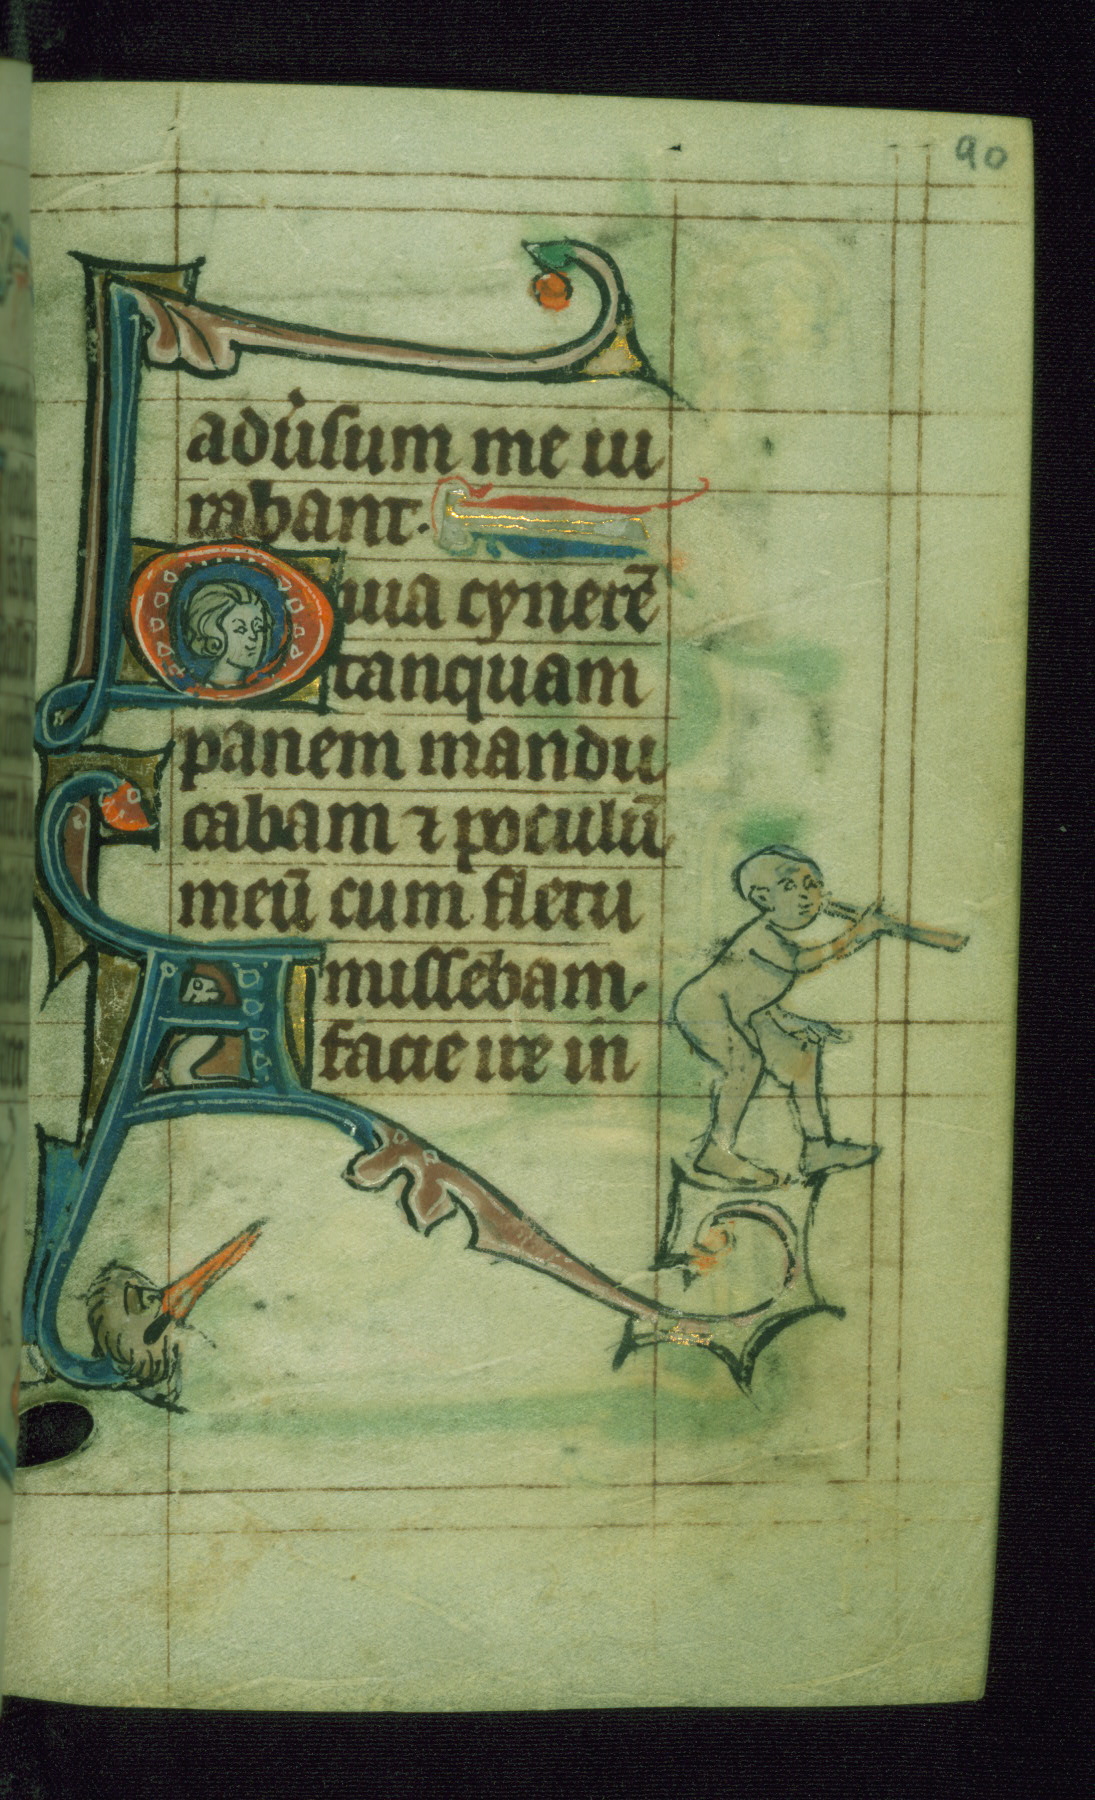 90
adu̾sum me iu
rabant.
Quia cynerē
tanquam
panem mandu
cabam ⁊ poculū
meū cum fletu
A missebam.
facie ire in